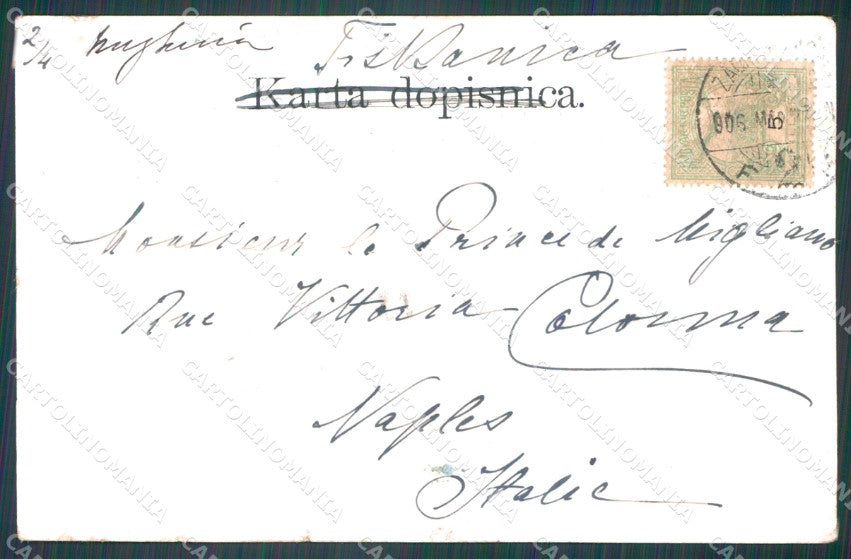 2/4 Ungheria Tiskanica
Karta dopisnica.
5
906 MAR
Monsieur le Prince de Migliano
Rue Vittoria Colonna
Naples
Italie
CARTOLINOMANIA